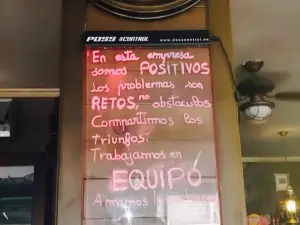 POSS #CONTROL
En esta empresa
somos POSITIVOS
Los problemas son
RETOS, no obstaculos
Compartimos los
triunfos.
Trabajamos en
EQUIPO
Amamos